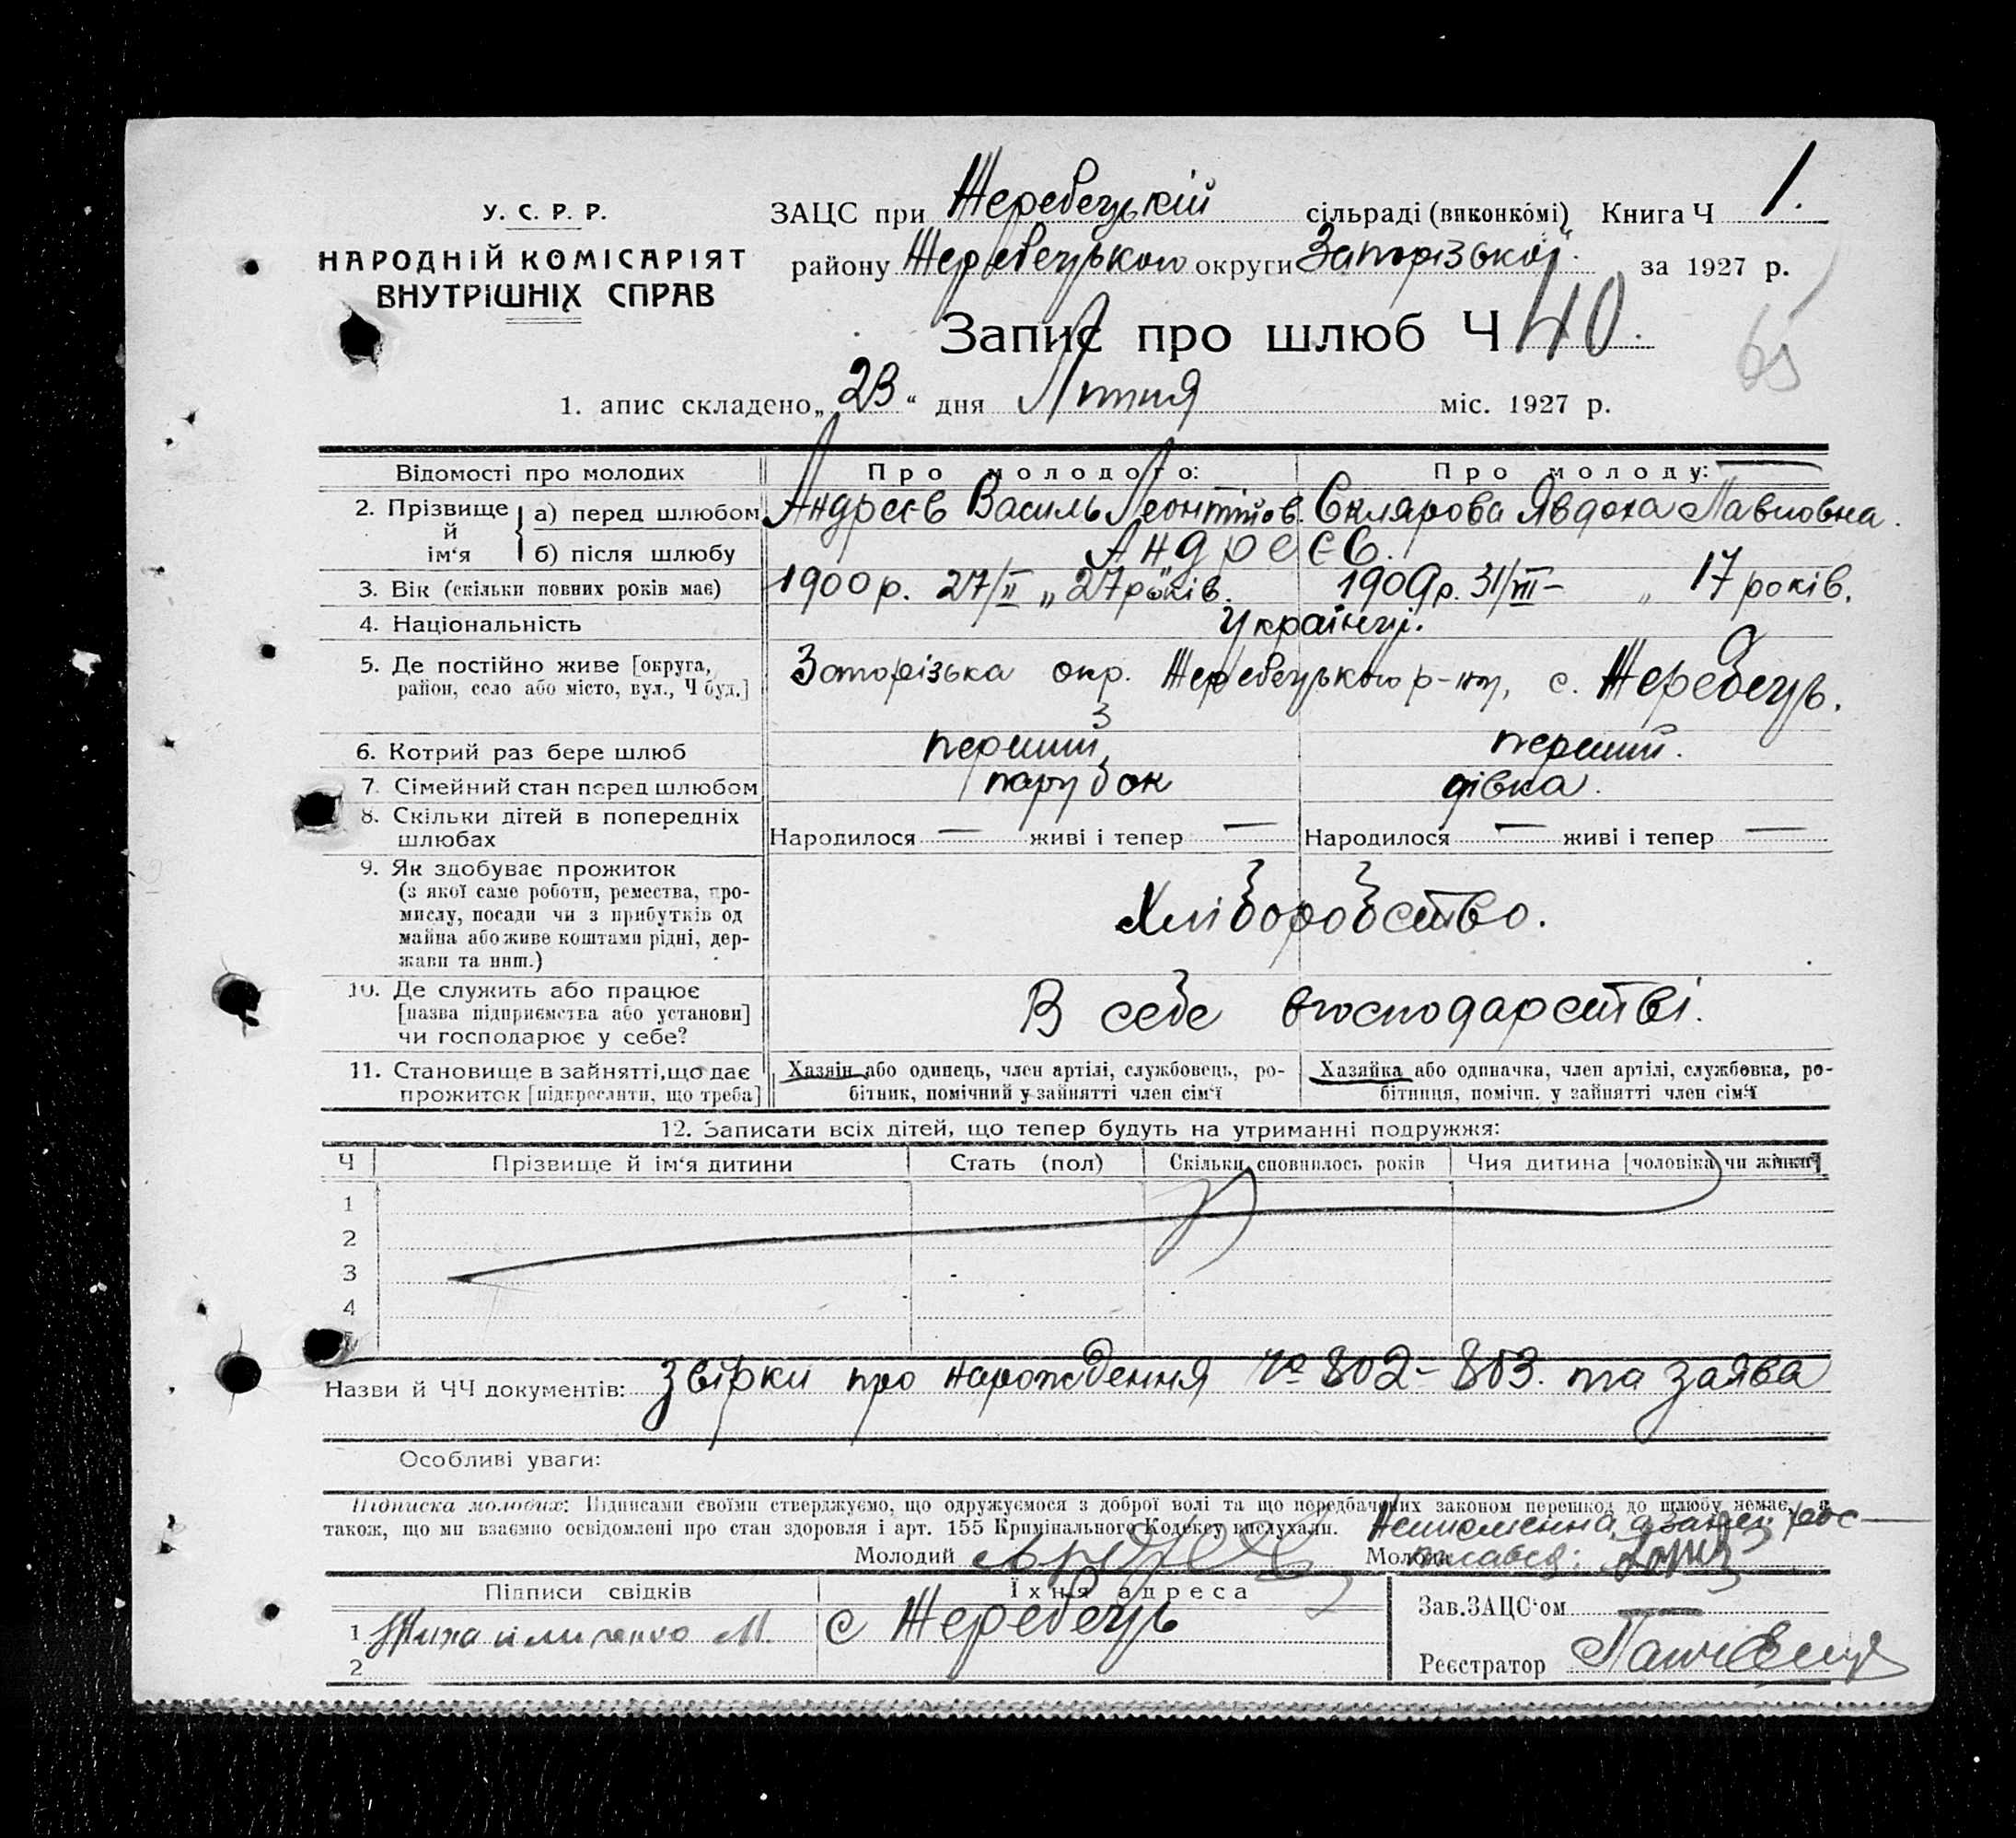 У. С. Р. Р.
НАРОДНІЙ КОМІСАРІЯТ
ВНУТРІШНІХ СПРАВ
ЗАЦС при Жеребецькій сільраді (виконкомі) Книга Ч 1.
району Жеребецького округи Запорізької за 1927 р.
Запис про шлюб Ч 40.
65
1. апис складено „23“ дня Липня міс. 1927 р.
Відомості про молодих
Про молодого:
Про молоду:
2. Прізвище й ім‘я
а) перед шлюбом
Андреєв Василь Леонтійов. Склярова Явдоха Павловна.
б) після шлюбу
Андреєв.
3. Вік (скільки повних років має)
1900 р. 27/II „ 27 років.
1909 р. 31/VII – „ 17 років.
4. Національність
Українці.
5. Де постійно живе [округа, район, село або місто, вул., Ч буд.]
Запорізька окр. Жеребецького р-ну, с. Жеребець.
6. Котрий раз бере шлюб
перший
перший.
7. Сімейний стан перед шлюбом
парубок
дівка.
8. Скільки дітей в попередніх шлюбах
Народилося — живі і тепер —
Народилося — живі і тепер —
9. Як здобуває прожиток
(з якої саме роботи, ремества, про-
мислу, посади чи з прибутків од
майна або живе коштами рідні, дер-
жави та инш.)
Хліборобство.
10. Де служить або працює
[назва підприємства або установи]
чи господарює у себе?
В себе вгосподарстві.
11. Становище в зайнятті, що дає
прожиток [підкреслити, що треба]
Хазяїн або одинець, член артілі, службовець, ро-
бітник, помічний у зайнятті член сім‘ї
Хазяйка або одиначка, член артілі, службовка, ро-
бітниця, помічн. у зайнятті член сім‘ї
12. Записати всіх дітей, що тепер будуть на утриманні подружжя:
Ч
Прізвище й ім‘я дитини
Стать (пол)
Скільки сповнилось років
Чия дитина [чоловіка чи жінки]
1
2
3
4
Назви й ЧЧ документів: Звірки про народження № 802-803. та заява
Особливі уваги:
Підписка молодих: Підписами своїми стверджуємо, що одружуємося з доброї волі та що передбачених законом перешкод до шлюбу немає, а
також, що ми взаємно освідомлені про стан здоровля і арт. 155 Кримінального Кодексу вислухали.
Неписьменна, а за неї рос-
Молодий
Молода писався:
Підписи свідків
Їхня адреса
Зав.ЗАЦС‘ом —
1 Михайличенко М.
с Жеребець
2
Реєстратор